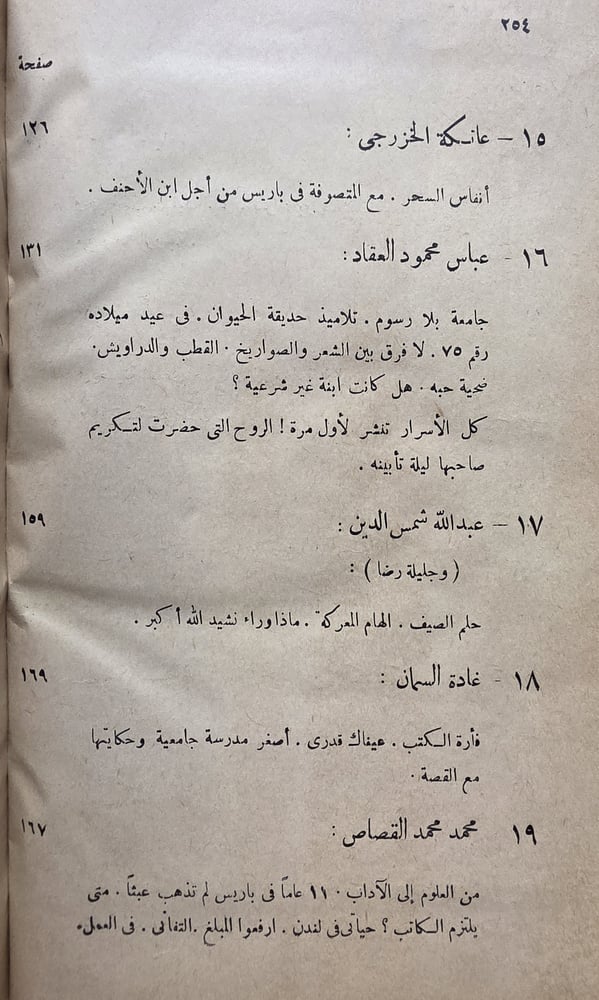 ٢٥٤
صفحة
١٥ – عاتكة الخزرجى : ١٢٦
أنفاس السحر . مع المتصوفة فى باريس من أجل ابن الأحنف .
١٦ - عباس محمود العقاد : ١٣١
جامعة بلا رسوم . تلاميذ حديقة الحيوان . فى عيد ميلاده
رقم ٧٥ . لا فرق بين الشعر والصواريخ . القطب والدراويش .
ضحية حبه . هل كانت ابنة غير شرعية ؟
كل الأسرار تنشر لأول مرة ! الروح التى حضرت لتكريم
صاحبها ليلة تأبينه .
١٧ – عبدالله شمس الدين : ١٥٩
( وجليلة رضا ) :
حلم الصيف . الهام المعركة . ماذا وراء نشيد الله أكبر .
١٨ - غادة السمان : ١٦٩
فأرة الكتب . عيناك قدرى . أصغر مدرسة جامعية وحكايتها
مع القصة .
١٩ محمد محمد القصاص : ١٦٧
من العلوم إلى الآداب . ١١ عاماً فى باريس لم تذهب عبثاً . متى
يلتزم الكاتب ؟ حياتى فى لندن . ارفعوا المبلغ . التفانى . فى العمل .